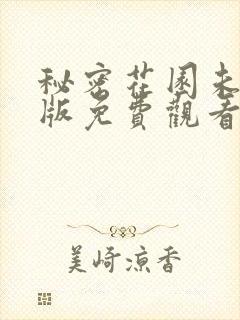 秘密花園未
版免費觀看
美崎涼香